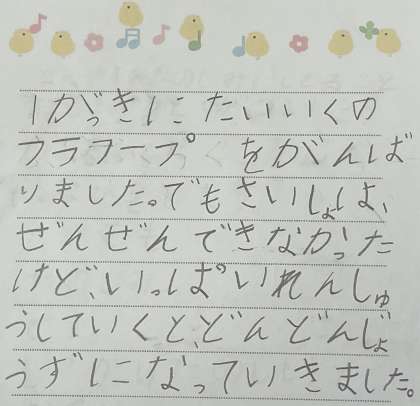 1がっきに たいいくの
フラフープ をがんば
りました。でもさいしょは、
ぜんぜんできなかった
けど、いっぱいれんしゅ
うしていくと、どんどんじょ
うずになっていきました。